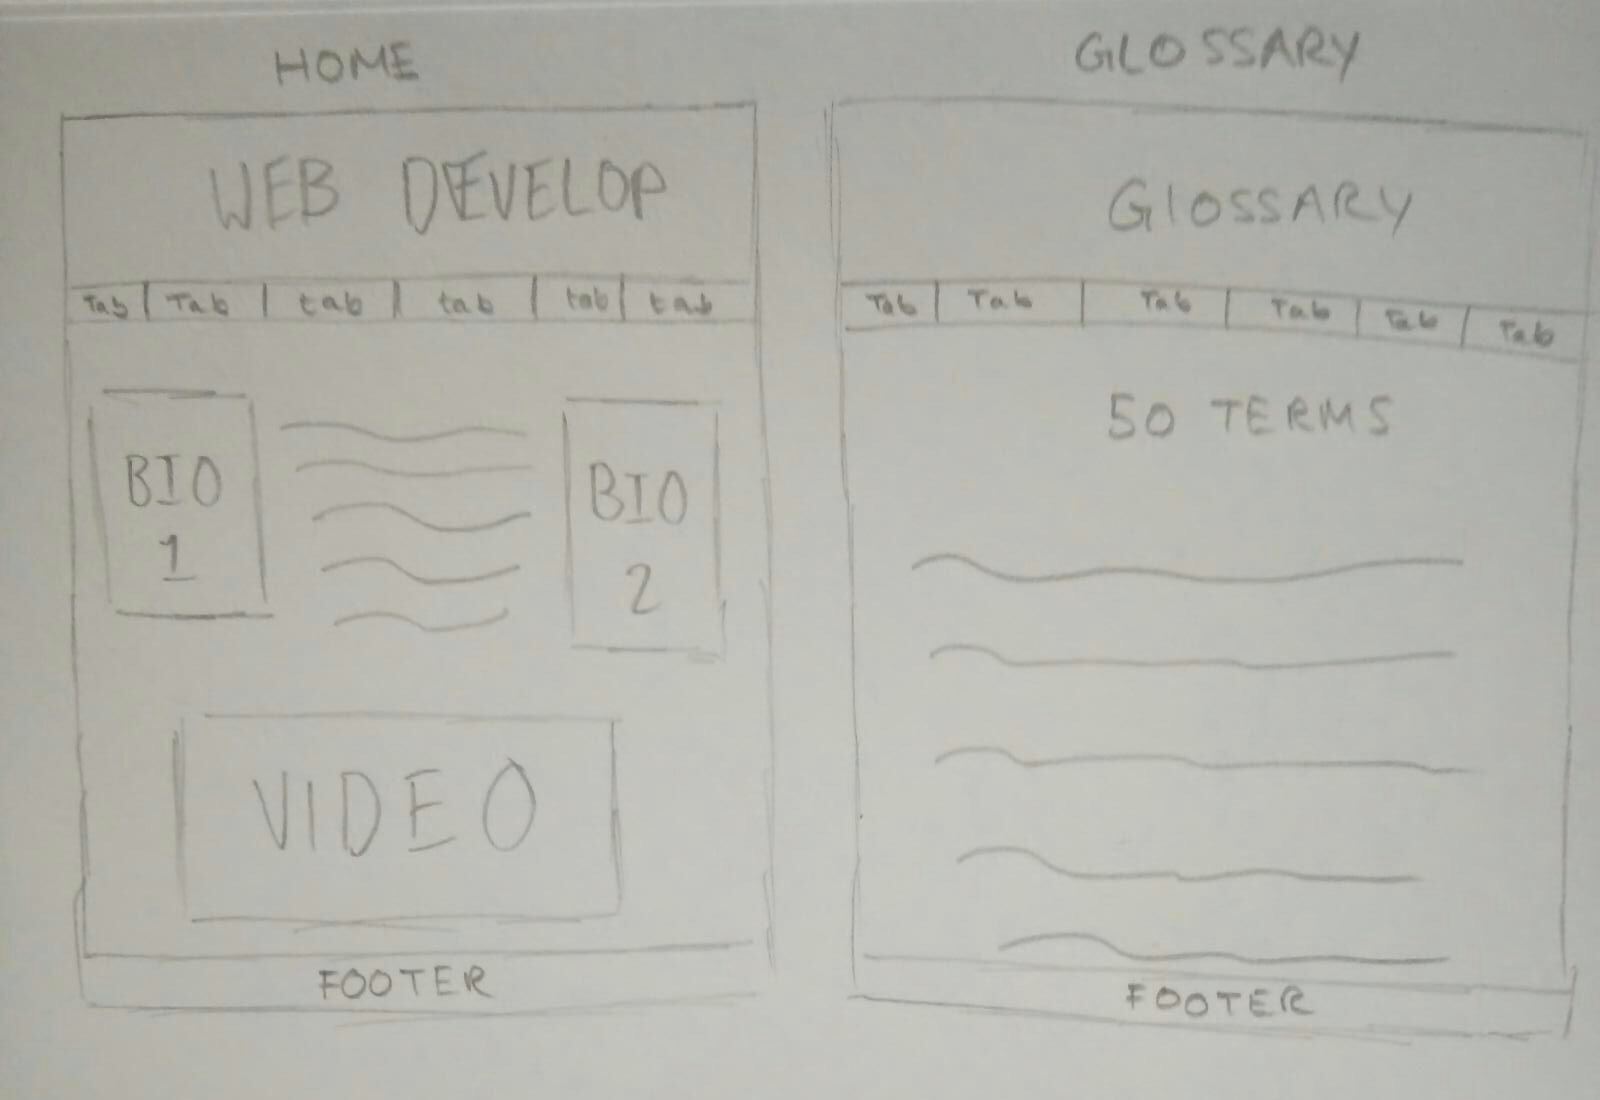 HOME
WEB DEVELOP
Tab Tab tab tab tab tab
BIO
1
BIO
2
VIDEO
FOOTER
GLOSSARY
GlOSSARY
Tab Tab Tab Tab Tab Tab
50 TERMS
FOOTER